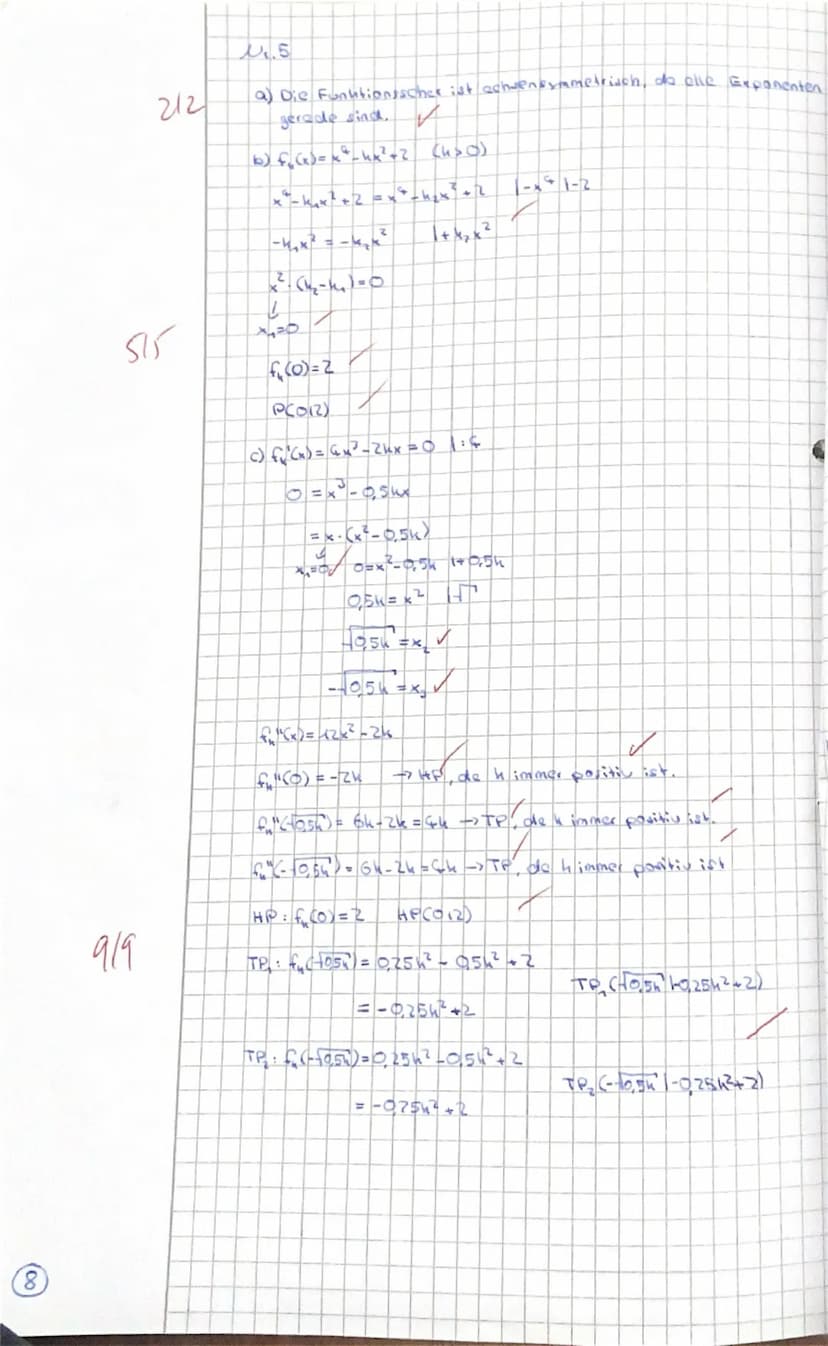 Nr. 5
2/2
a) Die Funktionsschar ist achsensymmetrisch, da alle Exponenten
gerade sind. ✓
b) fₖ(x) = x⁴ - kx² + 2 (k > 0)
x⁴ - k₁x² + 2 = x⁴ - k₂x² + 2 | -x⁴ | -2
-k₁x² = -k₂x² | + k₂x²
x² · (k₂ - k₁) = 0
↓
x₁ = 0
5/5
fₖ(0) = 2
P(0|2)
c) fₖ'(x) = 4x³ - 2kx = 0 | : 4
0 = x³ - 0,5kx
= x · (x² - 0,5k)
↓
x₁ = 0 ✓ 0 = x² - 0,5k | + 0,5k
0,5k = x² | √
√0,5k = x₂ ✓
-√0,5k = x₃ ✓
fₖ''(x) = 12x² - 2k
fₖ''(0) = -2k → HP, da k immer positiv ist. ✓
fₖ''(√0,5k) = 6k - 2k = 4k → TP, da k immer positiv ist.
fₖ''(-√0,5k) = 6k - 2k = 4k → TP, da k immer positiv ist
HP: fₖ(0) = 2 HP(0|2)
9/9
TP₁: fₖ(√0,5k) = 0,25k² - 0,5k² + 2
TP₁(√0,5k | -0,25k² + 2)
= -0,25k² + 2
TP₂: fₖ(-√0,5k) = 0,25k² - 0,5k² + 2
TP₂(-√0,5k | -0,25k² + 2)
= -0,25k² + 2
8